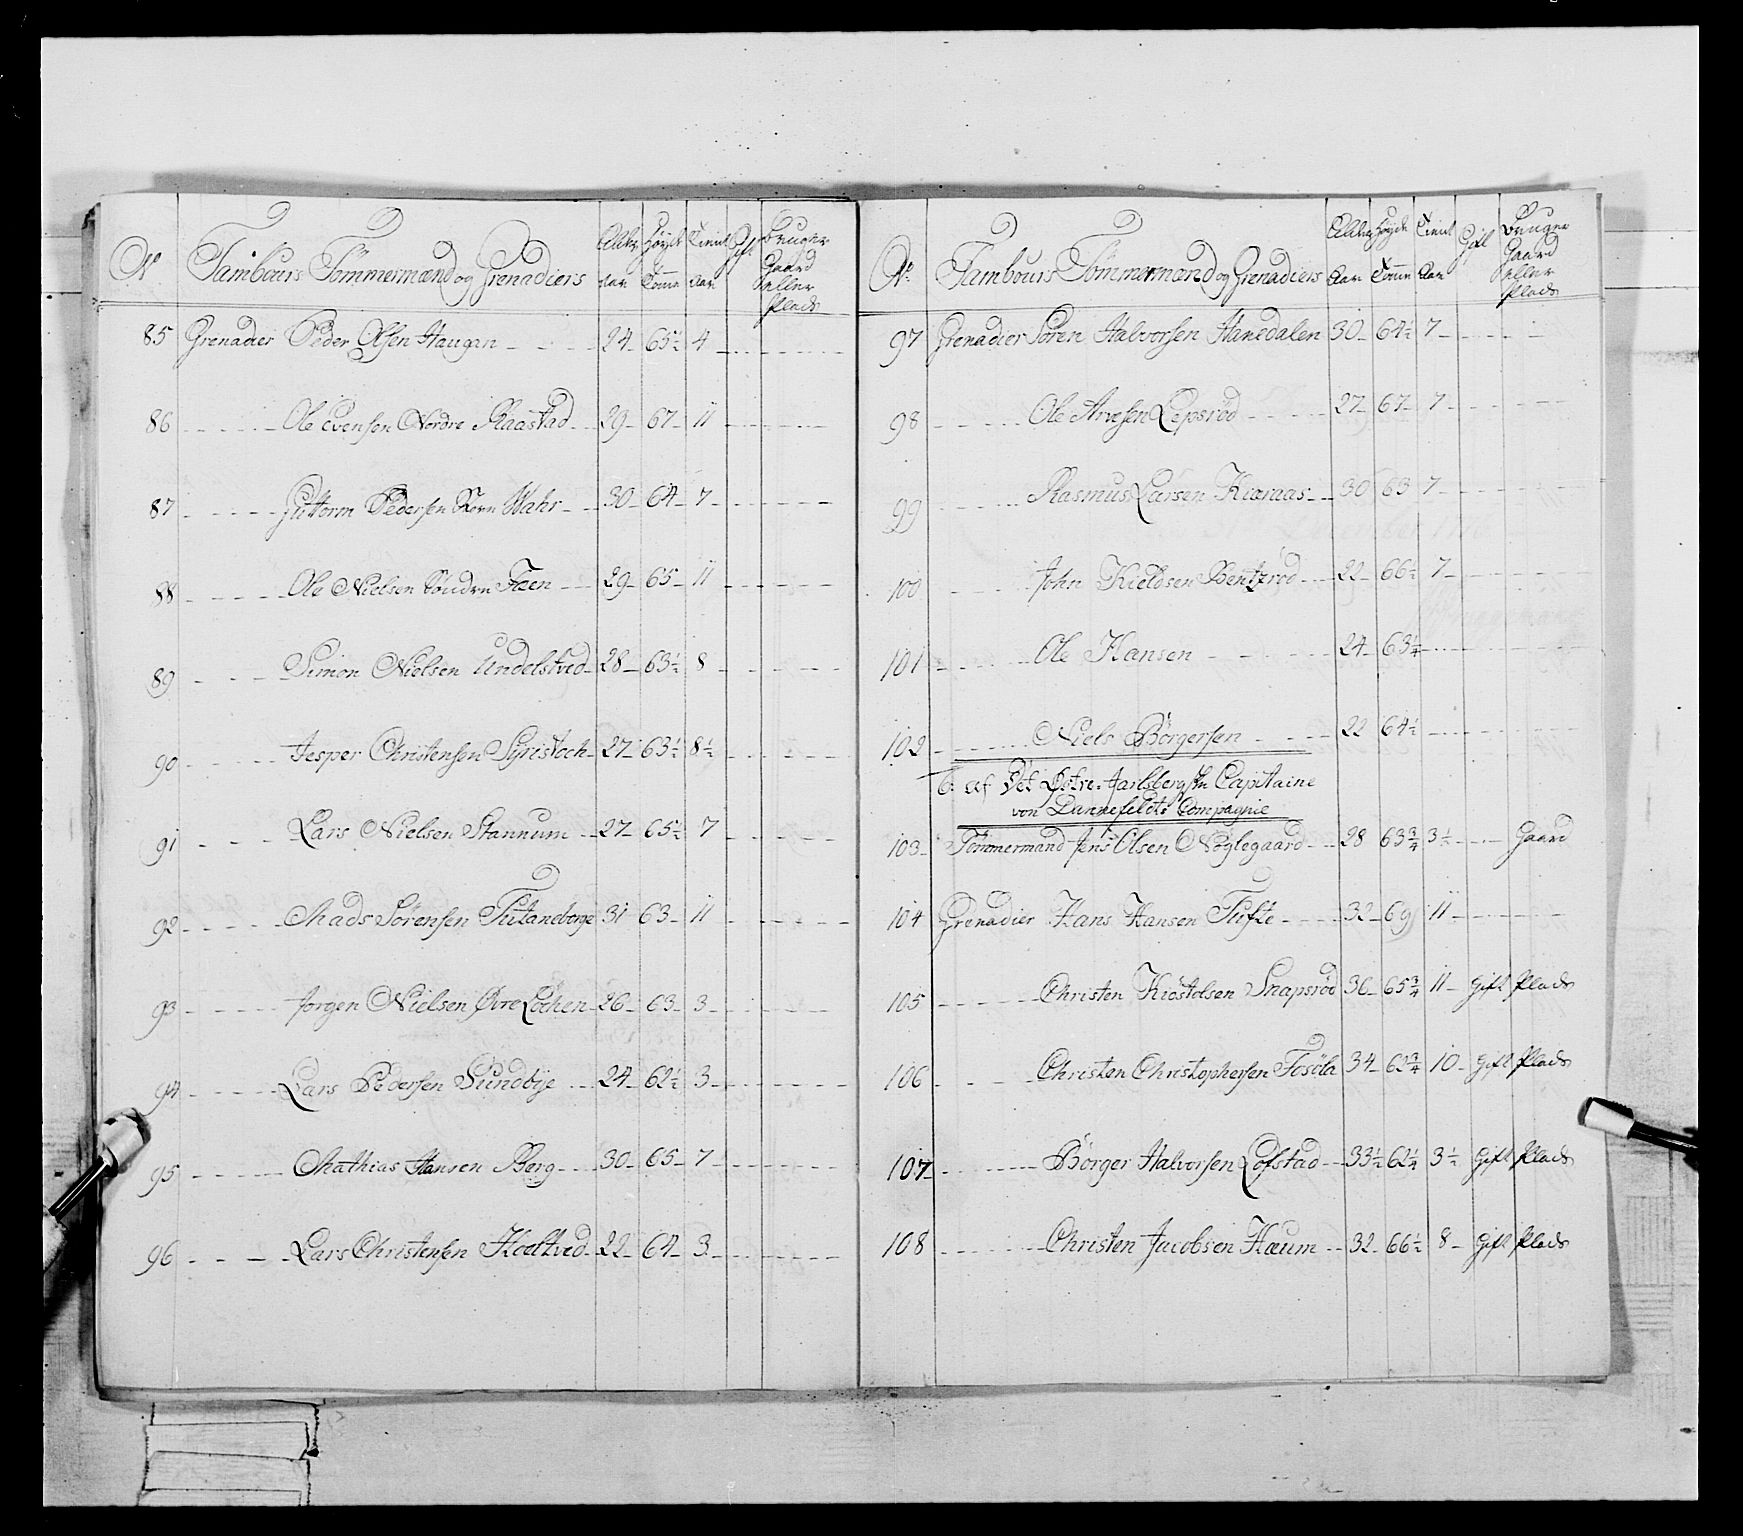 No Tambours Tømmermænd og Grenadiers Alder Aar Høyde Tomme Tient Aar Gift Bruger Gaard eller Plads
85 Grenadier Peder Olsen Haugen 24 65½ 4
86 Ole Evensen Nordre Raastad 29 67 11
87 Guttorm Pedersen Wahr 30 64 7
88 Ole Nielsen Søndre Foen 29 65 11
89 Simon Nielsen Undelstved 28 63½ 8
90 Jesper Christensen Syristoch 27 63½ 8½
91 Lars Nielsen Stannum 27 65½ 7
92 Mads Sørensen Tutaneborge 31 63 11
93 Jørgen Nielsen Øvre Løchen 26 63 3
94 Lars Pedersen Sundbye 24 62½ 3
95 Mathias Hansen Berg 30 65 7
96 Lars Christensen Holtved 22 64 3
No Tambours Tømmermænd og Grenadiers Alder Aar Høyde Tomme Tient Aar Gift Bruger Gaard eller Plads
97 Grenadier Søren Halvorsen Hanedalen 30 64½ 7
98 Ole Arvesen Lepsrød 27 67 7
99 Rasmus Larsen Kiæraas 30 63 7
100 John Kieldsen Bentzrød 22 66½ 7
101 Ole Hansen 24 63¼
102 Niels Børgersen 22 64½
6: af Det Østre Jarlsbergske Capitaine
von Dannefeldts Compagnie
103 Tømmermand Jens Olsen Nøglegaard 28 63¾ 3½ Gaard
104 Grenadier Hans Hansen Tufte 32 69 11
105 Christen Kiøstolsen Snapsrød 36 65¾ 11 Gift Plads
106 Christen Christophersen Fosøla 34 62¾ 10 Gift Plads
107 Børger Halvorsen Lofstad 33½ 62¼ 3½ Gift Plads
108 Christen Jacobsen Haum 32 66½ 8 Gift Plads